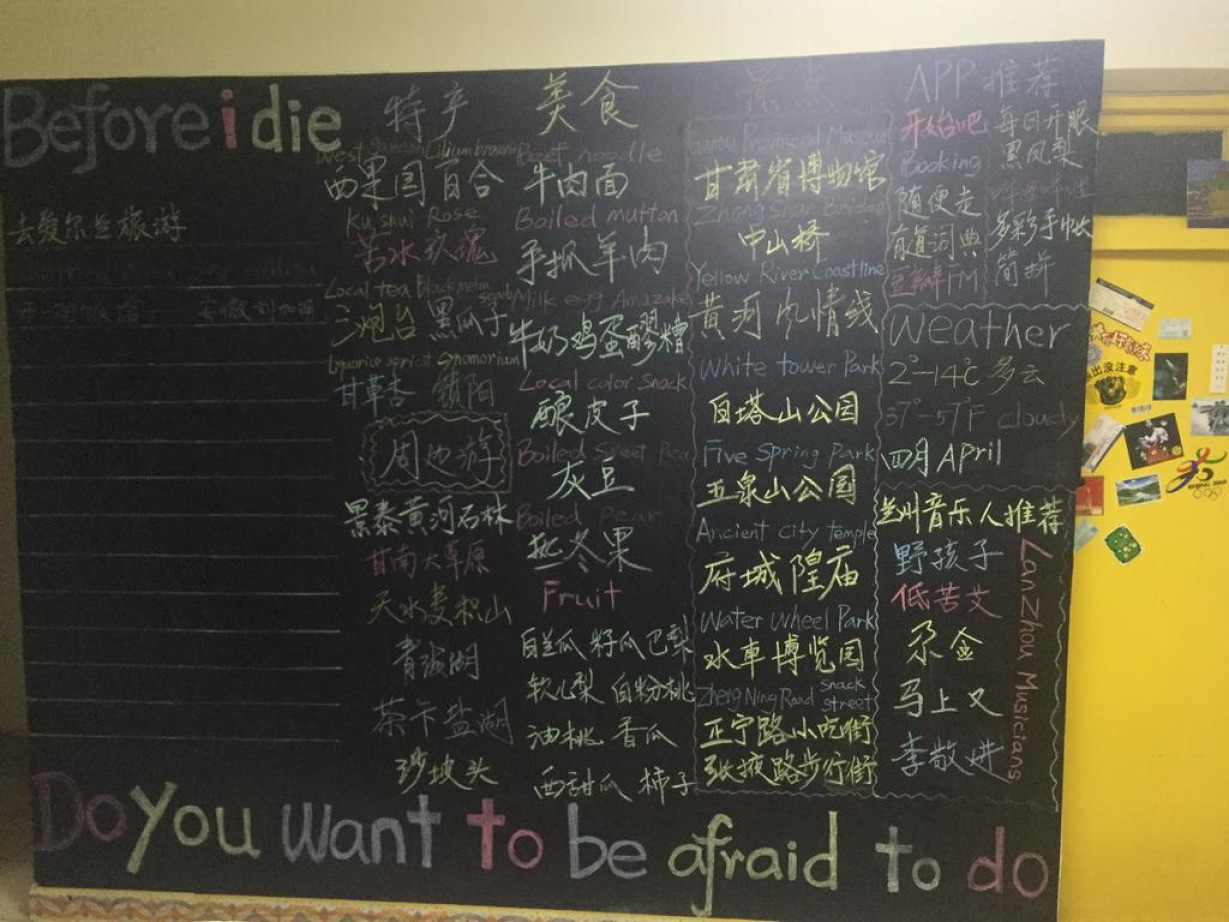 Before i die
去爱尔兰旅游
特产
西果园百合
Ku shui Rose
苦水玫瑰
Local tea Black melon seeds
三炮台 黑瓜子
Liquorice apricot
甘草杏 锁阳
周边游
景泰黄河石林
甘南大草原
天水麦积山
青海湖
茶卡盐湖
沙坡头
美食
Beef noodle
牛肉面
Boiled mutton
手抓羊肉
Milk egg Amazake
牛奶鸡蛋醪糟
Local color Snack
酿皮子
Boiled Sweet Pea
灰豆
Boiled Pear
热冬果
Fruit
白兰瓜 籽瓜 巴梨
软儿梨 白粉桃
油桃 香瓜
西甜瓜 柿子
景点
Gansu Provincial Museum
甘肃省博物馆
Zhong Shan Bridge
中山桥
Yellow River Coastline
黄河风情线
White tower Park
白塔山公园
Five Spring Park
五泉山公园
Ancient city temple
府城隍庙
Water Wheel Park
水車博览园
Zheng Ning Road snack street
正宁路小吃街
张掖路步行街
APP 推荐
开始吧
Booking
随便走
有道词典
豆瓣FM
每日开眼
黑凤梨
多彩手帐
简拼
Weather
2°-14°C 多云
37°-57°F cloudy
四月 April
兰州音乐人推荐
野孩子
低苦艾
朵金
马上又
李敬进
LanZhou Musicians
Do you want to be afraid to do
出没注意